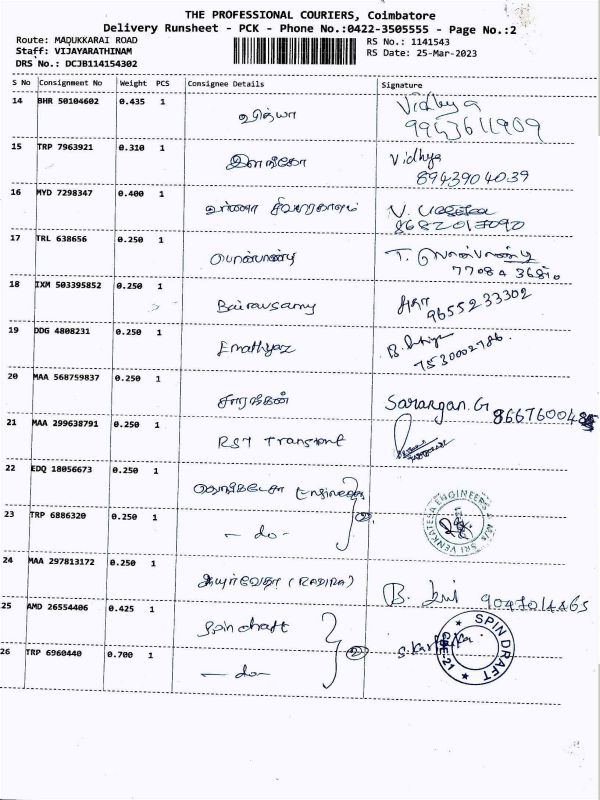 THE PROFESSIONAL COURIERS, Coimbatore
Delivery Runsheet - PCK - Phone No.:0422-3505555 - Page No.:2
Route: MADUKKARAI ROAD
RS No.: 1141543
Staff: VIJAYARATHINAM
RS Date: 25-Mar-2023
DRS No.: DCJB114154302
S No Consignment No Weight PCS Consignee Details Signature
14 BHR 50104602 0.435 1 வித்யா Vidhya
9943611909
15 TRP 7963921 0.310 1 இளங்கோ Vidhya
8943904039
16 MYD 7298347 0.400 1 V.
8682017090
17 TRL 638656 0.250 1 பொன்பாண்டி T. பொன்பாண்டி
77084 36810
18 IXM 503395852 0.250 1 Bairavsamy
9655233302
19 DDG 4808231 0.250 1 Emathiyaz B.
7530002786.
20 MAA 568759837 0.250 1 சாரங்கன் Sarangan.G
21 MAA 299638791 0.250 1 RST Transport
22 EDQ 18056673 0.250 1 வெங்கடேசா Engineers
23 TRP 6886320 0.250 1 - do - 2 SRI VENKATESA ENGINEERS
24 MAA 297813172 0.250 1 ஆயுர்வேதா (RADIRA) B. 9047014465
25 AMD 26554406 0.425 1 Spin draft SPIN DRAFT
26 TRP 6960440 0.700 1 - do - 2 CBE-21